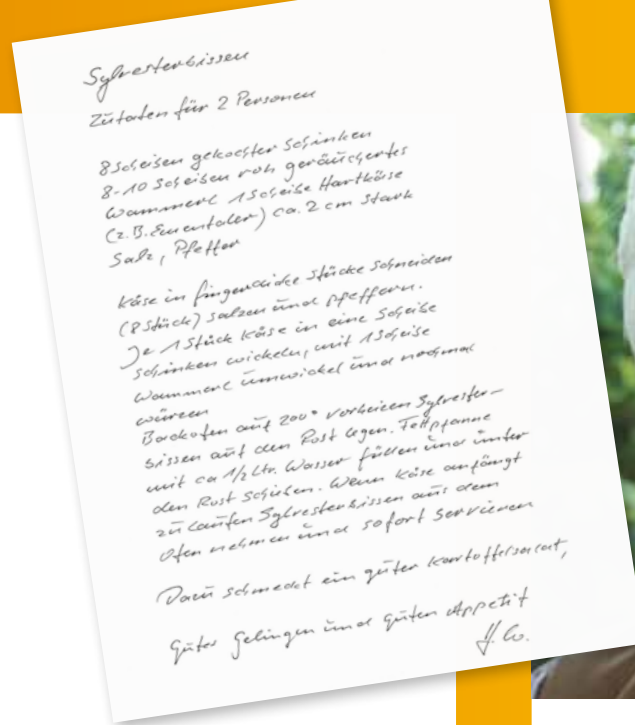 Sylvesterbissen
Zutaten für 2 Personen
8 Scheiben gekochter Schinken
8-10 Scheiben roh geräuchertes
Wammerl 1 Scheibe Hartkäse
(z.B. Ementaler) ca. 2 cm stark
Salz, Pfeffer
Käse in fingerdicke Stücke schneiden
(8 Stück) salzen und pfeffern.
Je 1 Stück Käse in eine Scheibe
Schinken wickeln, mit 1 Scheibe
Wammerl umwickel und nochmal
würzen
Backofen auf 200° vorheizen Sylvester-
bissen auf den Rost legen. Fettpfanne
mit ca 1/2 Ltr. Wasser füllen und unter
den Rost schieben. Wenn Käse anfängt
zu laufen Sylvesterbissen aus dem
Ofen nehmen und sofort servieren
Dazu schmeckt ein guter Kartoffelsalat,
Gutes Gelingen und guten Appetit